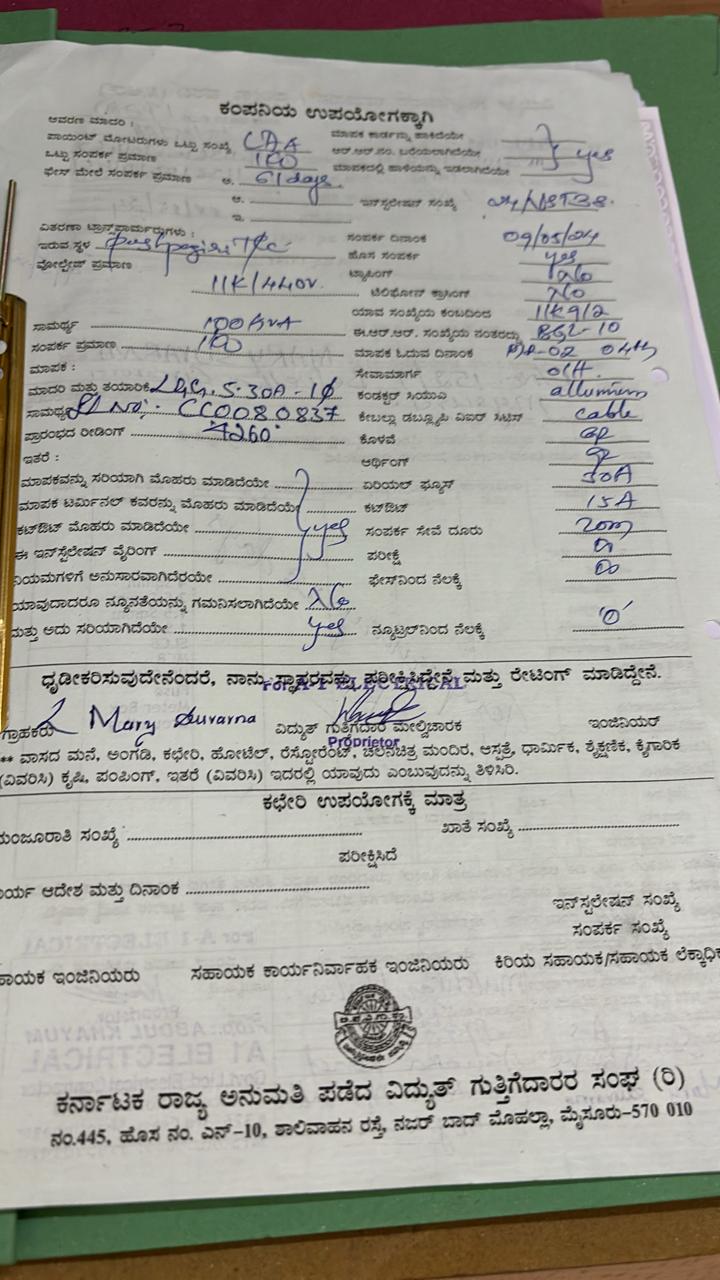 ಕಂಪನಿಯ ಉಪಯೋಗಕ್ಕಾಗಿ
ಆವರಣ ಮಾದರಿ : ಮಾಪಕ ಕಾರ್ಡನ್ನು ಹಾಕಿದೆಯೇ
ಪಾಯಿಂಟ್ ಮೋಟರುಗಳು ಒಟ್ಟು ಸಂಖ್ಯೆ ಆರ್.ಆರ್.ನಂ. ಬರೆಯಲಾಗಿದೆಯೇ yes
ಒಟ್ಟು ಸಂಪರ್ಕ ಪ್ರಮಾಣ ಮಾಪಕದಲ್ಲಿ ಹಾಳೆಯನ್ನು ಇಡಲಾಗಿದೆಯೇ
ಫೇಸ್ ಮೇಲೆ ಸಂಪರ್ಕ ಪ್ರಮಾಣ ಅ.
ಆ. ಇನ್‌ಸ್ಟಲೇಷನ್ ಸಂಖ್ಯೆ
ಇ.
ವಿತರಣಾ ಟ್ರಾನ್ಸ್‌ಫಾರ್ಮರ್‍ರುಗಳು : ಸಂಪರ್ಕ ದಿನಾಂಕ 09/05/24
ಇರುವ ಸ್ಥಳ pushpagiri T/c ಹೊಸ ಸಂಪರ್ಕ yes
ವೋಲ್ಟೇಜ್ ಪ್ರಮಾಣ 11K/440V. ಟ್ಯಾಪಿಂಗ್ No
ಟೆಲಿಫೋನ್ ಕ್ರಾಸಿಂಗ್ No
ಯಾವ ಸಂಖ್ಯೆಯ ಕಂಬದಿಂದ 11K9/2
ಸಾಮರ್ಥ್ಯ 100KVA ಈ.ಆರ್.ಆರ್. ಸಂಖ್ಯೆಯ ನಂತರದ್ದು BGL-10
ಸಂಪರ್ಕ ಪ್ರಮಾಣ 100 ಮಾಪಕ ಓದುವ ದಿನಾಂಕ 04th
ಮಾಪಕ : ಸೇವಾಮಾರ್ಗ O/H
ಮಾದರಿ ಮತ್ತು ತಯಾರಿಕೆ L&G. 5-30A-1Φ ಕಂಡಕ್ಟರ್ ಸಿಯುಎ
ಸಾಮರ್ಥ್ಯ Sl No: CC0080837 ಕೇಬಲ್ಲು ಡಬ್ಲ್ಯೂಪಿ ವಿಐಆರ್ cable
ಪ್ರಾರಂಭದ ರೀಡಿಂಗ್ 7260 ಕೊಳವೆ
ಇತರೆ : ಆರ್ಥಿಂಗ್
ಮಾಪಕವನ್ನು ಸರಿಯಾಗಿ ಮೊಹರು ಮಾಡಿದೆಯೇ ಏರಿಯಲ್ ಫ್ಯೂಸ್ 30A
ಮಾಪಕ ಟರ್ಮಿನಲ್ ಕವರನ್ನು ಮೊಹರು ಮಾಡಿದೆಯೇ ಕಟ್‌ಔಟ್ 15A
ಕಟ್‌ಔಟ್ ಮೊಹರು ಮಾಡಿದೆಯೇ yes ಸಂಪರ್ಕ ಸೇವೆ ದೂರು 20m
ಈ ಇನ್‌ಸ್ಟಲೇಷನ್ ವೈರಿಂಗ್ ಪರೀಕ್ಷೆ
ನಿಯಮಗಳಿಗೆ ಅನುಸಾರವಾಗಿದೆರೆಯೇ ಫೇಸ್‌ನಿಂದ ನೆಲಕ್ಕೆ
ಯಾವುದಾದರೂ ನ್ಯೂನತೆಯನ್ನು ಗಮನಿಸಲಾಗಿದೆಯೇ No
ಮತ್ತು ಅದು ಸರಿಯಾಗಿದೆಯೇ yes ನ್ಯೂಟ್ರಲ್‌ನಿಂದ ನೆಲಕ್ಕೆ '0'
ಧೃಡೀಕರಿಸುವುದೇನೆಂದರೆ, ನಾನು ಸ್ಥಾವರವನ್ನು ಪರೀಕ್ಷಿಸಿದ್ದೇನೆ ಮತ್ತು ರೇಟಿಂಗ್ ಮಾಡಿದ್ದೇನೆ.
For A-1 ELECTRICAL
ಗ್ರಾಹಕರು Mary Suvarna ವಿದ್ಯುತ್ ಗುತ್ತಿಗೆದಾರ ಮೇಲ್ವಿಚಾರಕ ಇಂಜಿನಿಯರ್
Proprietor
** ವಾಸದ ಮನೆ, ಅಂಗಡಿ, ಕಛೇರಿ, ಹೋಟೆಲ್, ರೆಸ್ಟೋರೆಂಟ್, ಚಲನಚಿತ್ರ ಮಂದಿರ, ಆಸ್ಪತ್ರೆ, ಧಾರ್ಮಿಕ, ಶೈಕ್ಷಣಿಕ, ಕೈಗಾರಿಕ
(ವಿವರಿಸಿ) ಕೃಷಿ, ಪಂಪಿಂಗ್, ಇತರೆ (ವಿವರಿಸಿ) ಇದರಲ್ಲಿ ಯಾವುದು ಎಂಬುವುದನ್ನು ತಿಳಿಸಿರಿ.
ಕಛೇರಿ ಉಪಯೋಗಕ್ಕೆ ಮಾತ್ರ
ಮಂಜೂರಾತಿ ಸಂಖ್ಯೆ ಖಾತೆ ಸಂಖ್ಯೆ
ಪರೀಕ್ಷಿಸಿದೆ
ಕಾರ್ಯ ಆದೇಶ ಮತ್ತು ದಿನಾಂಕ
ಇನ್‌ಸ್ಟಲೇಷನ್ ಸಂಖ್ಯೆ
ಸಂಪರ್ಕ ಸಂಖ್ಯೆ
ಸಹಾಯಕ ಇಂಜಿನಿಯರು ಸಹಾಯಕ ಕಾರ್ಯನಿರ್ವಾಹಕ ಇಂಜಿನಿಯರು ಕಿರಿಯ ಸಹಾಯಕ/ಸಹಾಯಕ ಲೆಕ್ಕಾಧಿಕ
ಕರ್ನಾಟಕ ರಾಜ್ಯ ಅನುಮತಿ ಪಡೆದ ವಿದ್ಯುತ್ ಗುತ್ತಿಗೆದಾರರ ಸಂಘ (ರಿ)
ನಂ.445, ಹೊಸ ನಂ. ಎನ್-10, ಶಾಲಿವಾಹನ ರಸ್ತೆ, ನಜರ್ ಬಾದ್ ಮೊಹಲ್ಲಾ, ಮೈಸೂರು-570 010